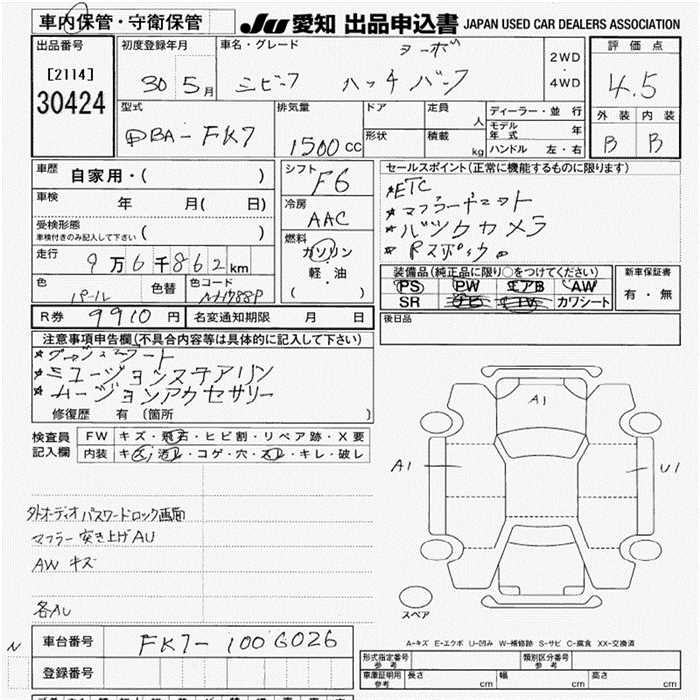 車内保管・守衛保管
JU 愛知 出品申込書 JAPAN USED CAR DEALERS ASSOCIATION
出品番号
[2114]
30424
初度登録年月
30 5月
車名・グレード
ターボ
シビック ハッチバック
2WD
・
4WD
評価点
4.5
外装 内装
B B
型式
DBA-FK7
排気量
1500cc
ドア
形状
定員 人
積載 kg
ディーラー・並行
モデル年式 年
ハンドル 左・右
車歴
自家用・( )
車検 年 月( 日)
受検形態
車検付きのみ記入して下さい ( )
走行
9万6千862km
色 パール 色替 色コード NH788P
シフト F6
冷房 AAC
燃料
ガソリン
軽・油
( )
セールスポイント(正常に機能するものに限ります)
*ETC
*バックカメラ
装備品(純正品に限り○をつけてください)
PS PW エアB AW
SR カワシート
新車保証書
有・無
R券 9910円
名変通知期限 月 日
後日品
注意事項申告欄(不具合内容等は具体的に記入して下さい)
修復歴 有 〔箇所 〕
検査員
記入欄
FW キズ・飛石・ヒビ割・リペア跡・X要
内装 キズ・汚レ・コゲ・穴・スレ・キレ・破レ
外オーディオ パスワードロック画面
マフラー突き上げAU
AW キズ
A1
A1
U1
スペア
A-キズ E-エクボ U-凹み W-補修跡 S-サビ C-腐食 XX-交換済
N
車台番号 FK7-1006026
登録番号
形式指定番号
参考
類別区分番号
参考
車庫証明用
参考
長さ cm
幅 cm
高さ cm